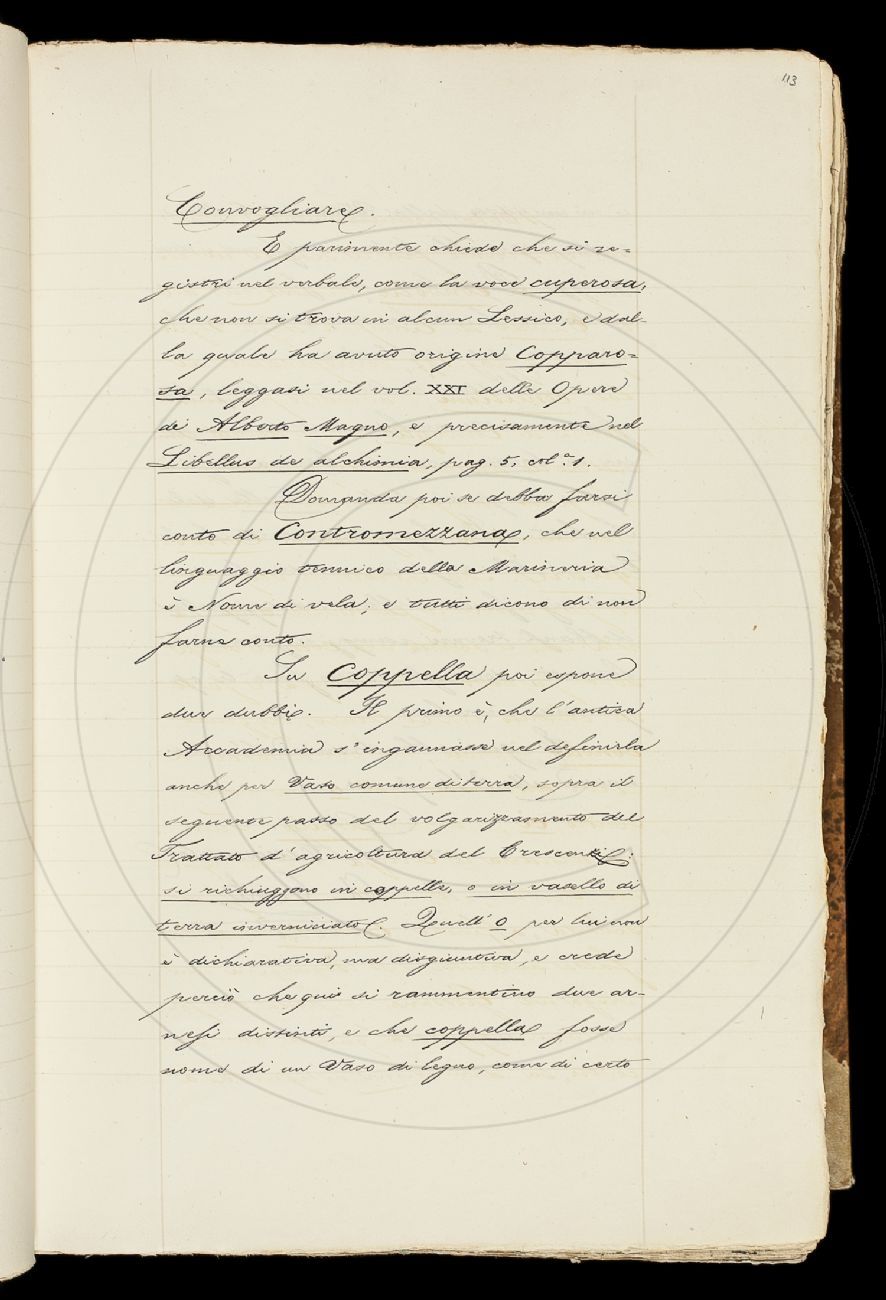 113
Convogliare.
E parimente chiede che si re=
gistri nel verbale, come la voce cuperosa,
che non si trova in alcun Lessico, e dal-
la quale ha avuto origine Copparo=
sa, leggasi nel vol. XXI delle Opere
di Alberto Magno, e precisamente nel
Libellus de alchimia, pag. 5, col.ª 1.
Domanda poi se debba farsi
conto di Contromezzana, che nel
linguaggio tecnico della Marineria
è Nome di vela; e tutti dicono di non
farne conto.
Su Coppella poi espone
due dubbi. Il primo è, che l'antica
Accademia s'ingannasse nel definirla
anche per Vaso comune di terra, sopra il
seguente passo del volgarizzamento del
Trattato d'agricoltura del Crescenzi:
si richiuggono in coppelle, o in vasello di
terra inverniciato. Quell'o per lui non
è dichiarativa, ma disgiuntiva, e crede
perciò che qui si rammentino due ar-
nesi distinti, e che coppella fosse
nome di un Vaso di legno, come di certo